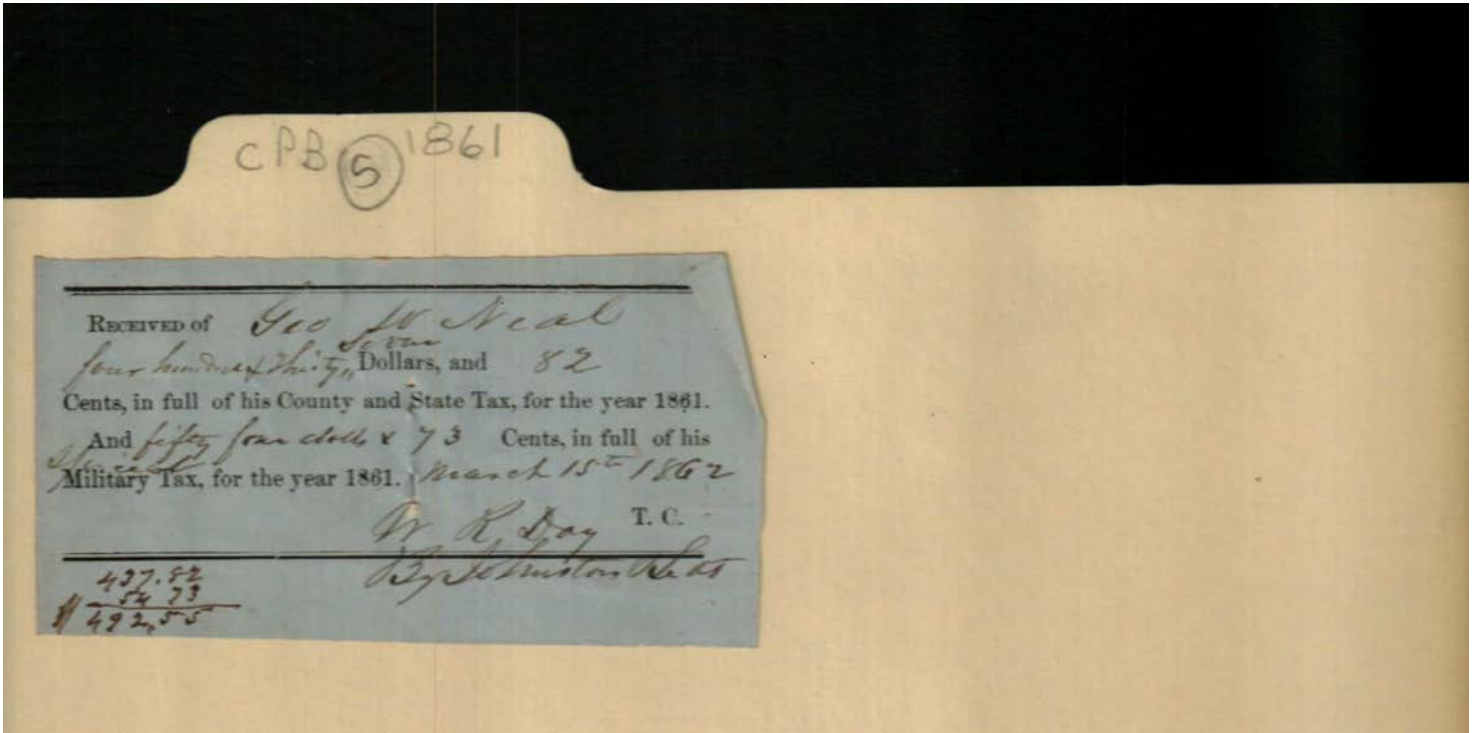 CPB 5 1861
RECEIVED of Geo W Neal
seven
four hundred & thirty,, Dollars, and 82
Cents, in full of his County and State Tax, for the year 1861.
And fifty four dolls & 73 Cents, in full of his
Military Tax, for the year 1861. March 15th 1862
W R Day T. C.
By Johnston
437.82
54 73
492,55